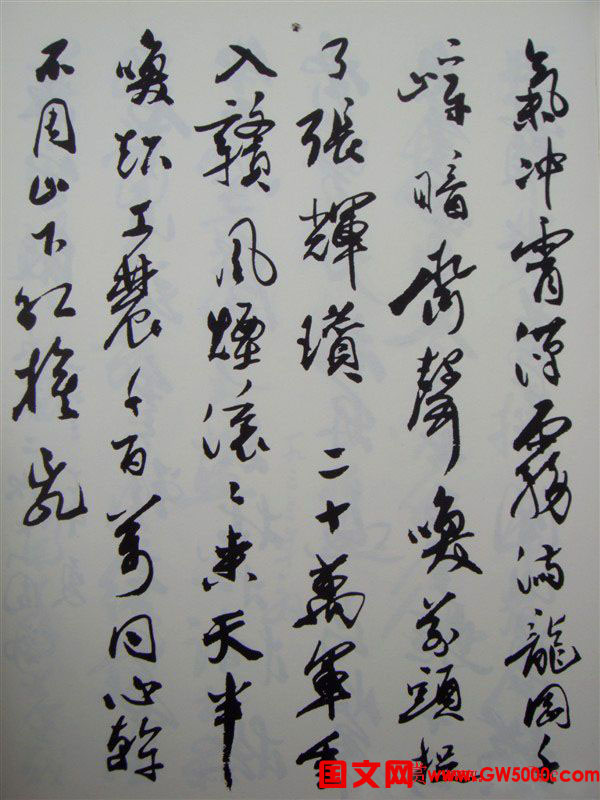 氣冲霄漢霧滿龍岡千
嶂暗齊聲喚前頭捉
了張輝瓚 二十萬軍重
入贛風煙滾〻來天半
喚起工農千百萬同心幹
不周山下紅旗亂
国文网 www.GW5000.com